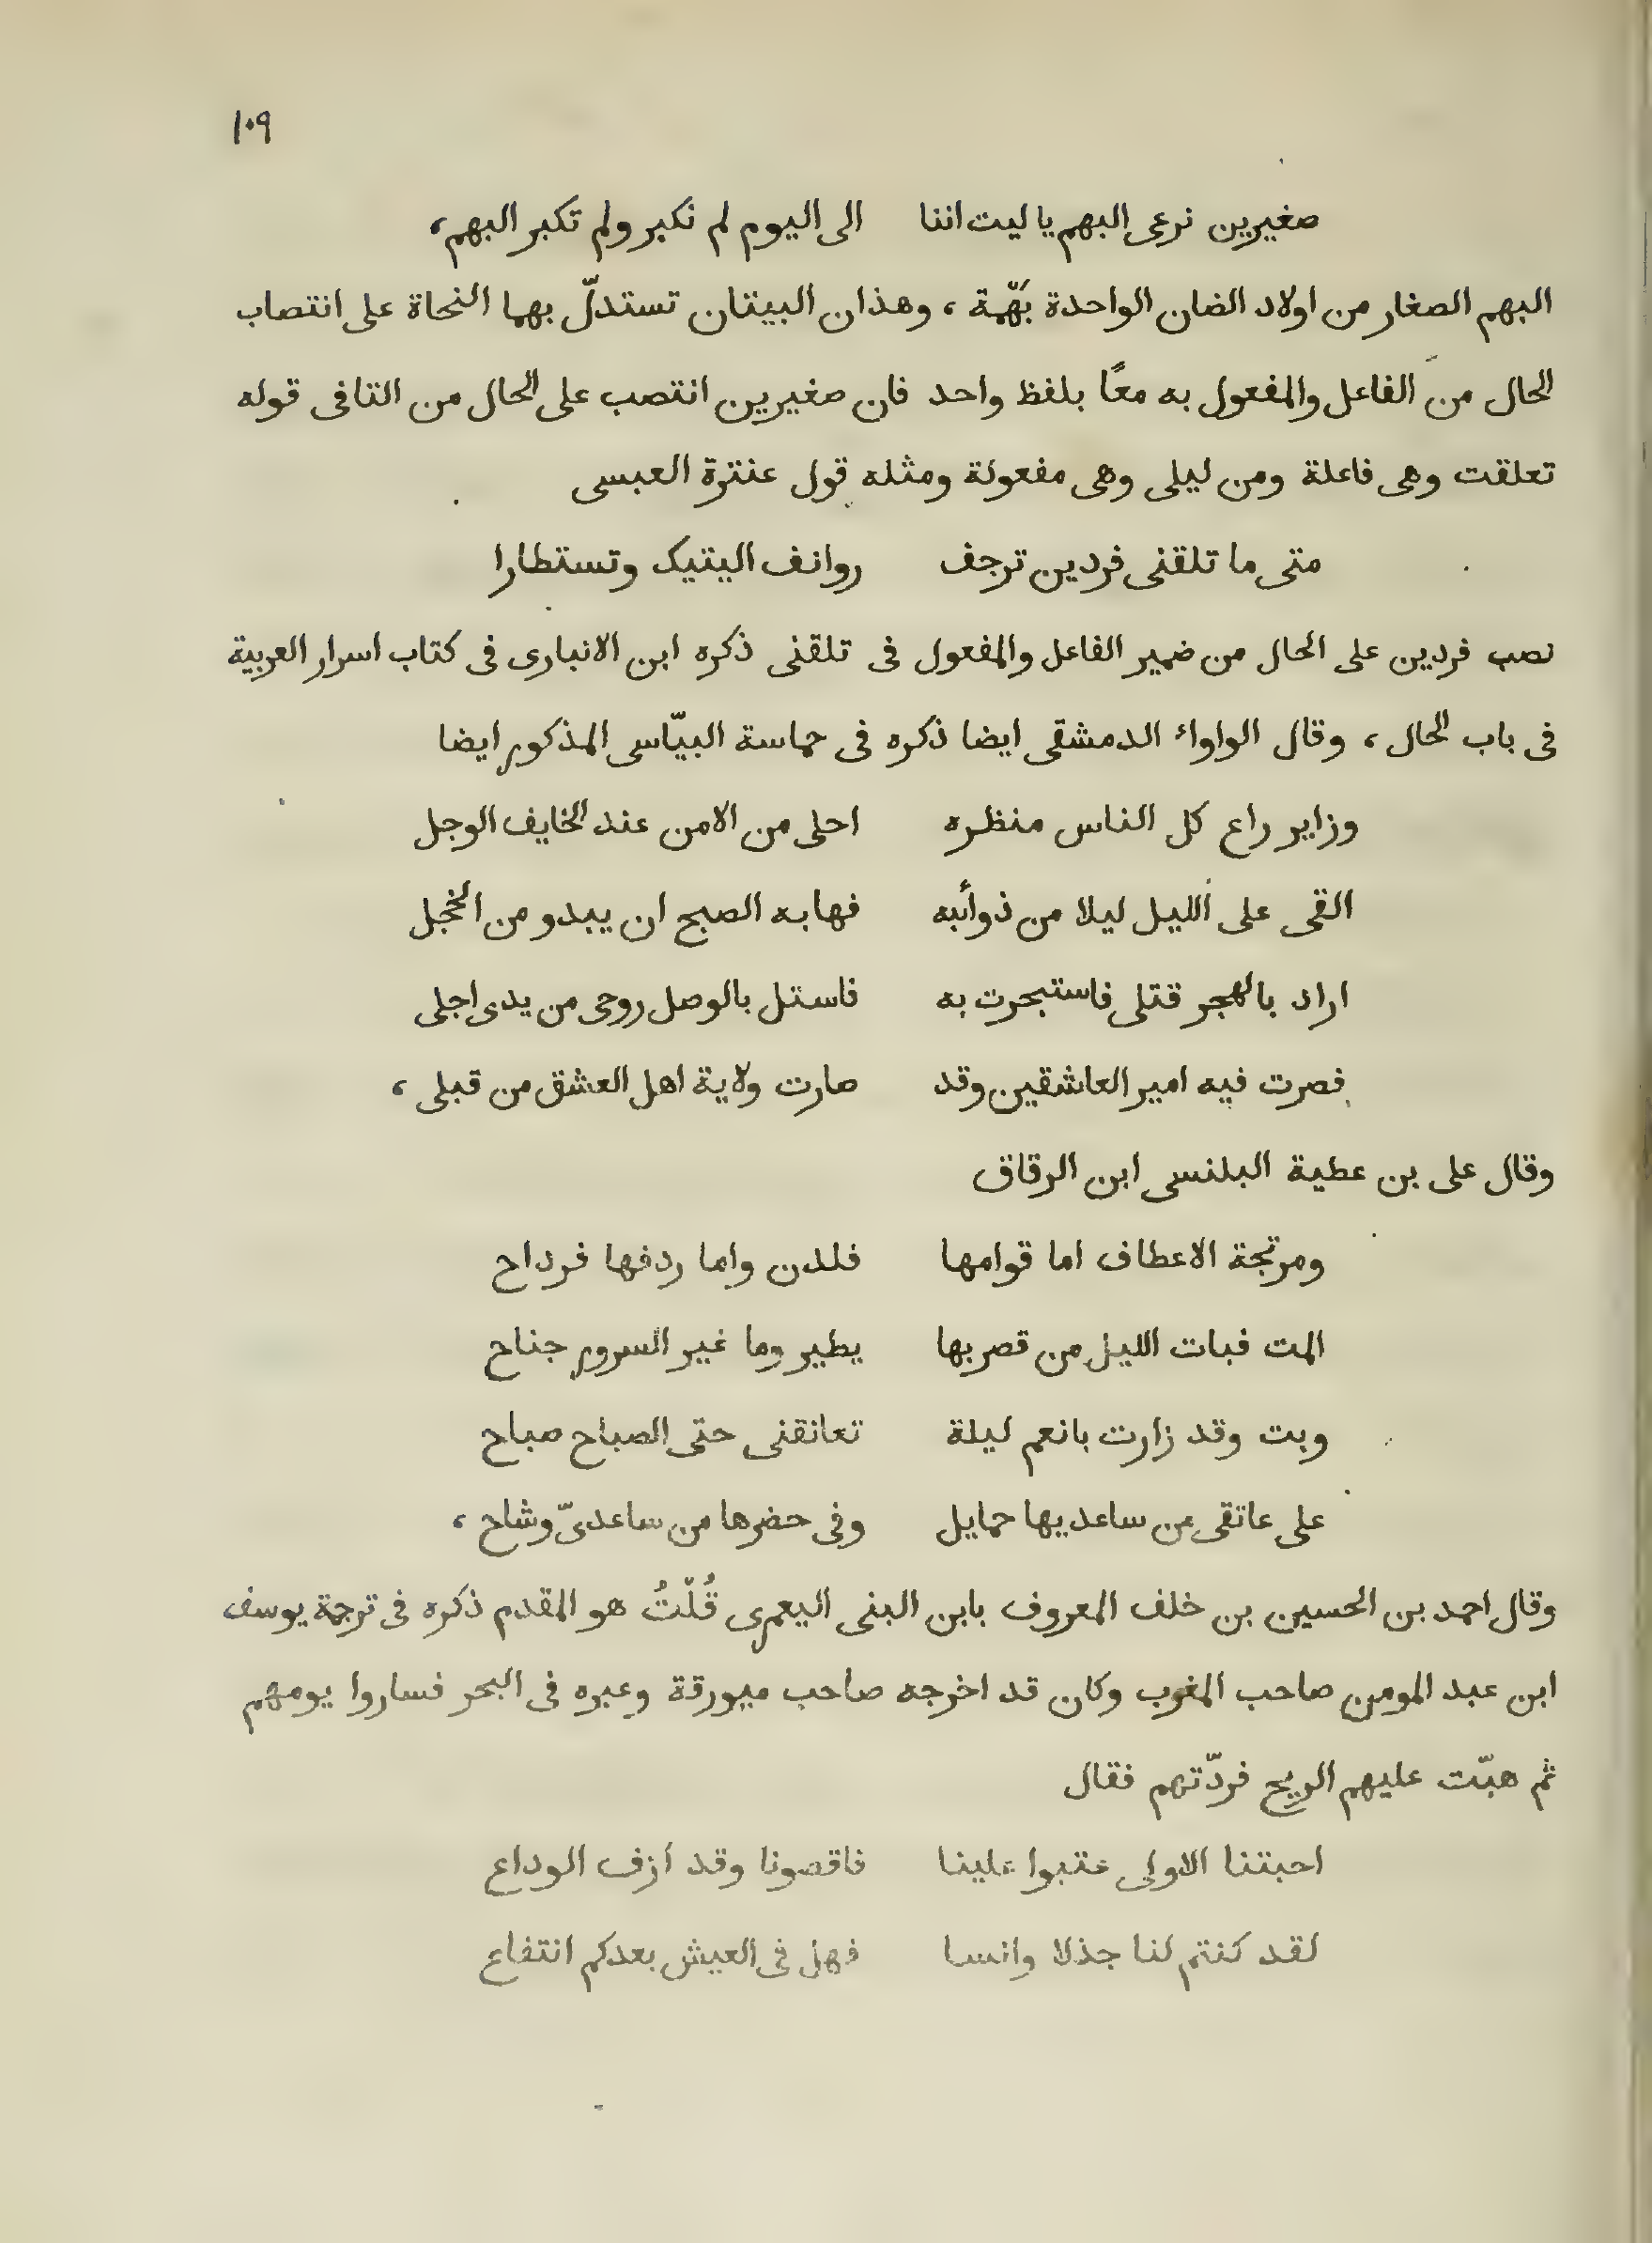 ١٠٩
صغيرين نرعى البهم يا ليت اننا الى اليوم لم نكبر ولم تكبر البهم ،
البهم الصغار من اولاد الضان الواحدة بَهْمة ، وهذان البيتان تستدلّ بهما النحاة على انتصاب
الحال من الفاعل والمفعول به معًا بلفظ واحد فان صغيرين انتصب على الحال من التا فى قوله
تعلقت وهى فاعلة ومن ليلى وهى مفعولة ومثله قول عنترة العبسى
متى ما تلقنى فردين ترجف روانف اليتيك وتستطارا
نصب فردين على الحال من ضمير الفاعل والمفعول فى تلقنى ذكره ابن الانبارى فى كتاب اسرار العربية
فى باب الحال ، وقال الواواء الدمشقى ايضا ذكره فى حماسة البيّاسى المذكور ايضا
وزاير راع كل الناس منظره احلى من الامن عند الخايف الوجل
القى على الليل ليلا من ذوأئبه فهابه الصبح ان يبدو من الخجل
اراد بالهجر قتلى فاستجرت به فاستل بالوصل روحى من يدى اجلى
فصرت فيه امير العاشقين وقد صارت ولاية اهل العشق من قبلى ،
وقال على بن عطية البلنسى ابن الرقاق
ومرتجة الاعطاف اما قوامها فلدن واما ردفها فرداح
المت فبات الليل من قصر بها يطير وما غير السرور جناح
وبت وقد زارت بانعم ليلة تعانقنى حتى الصباح صباح
على عاتقى من ساعديها حمايل وفى حضرها من ساعدىّ وشاح ،
وقال احمد بن الحسين بن خلف المعروف بابن البنى اليعمرى قُلْتُ هو المقدم ذكره فى ترجمة يوسف
ابن عبد المومن صاحب المغرب وكان قد اخرجه صاحب ميورقة وعبره فى البحر فساروا يومهم
ثم هبّت عليهم الريح فردّتهم فقال
احبتنا الاولى عتبوا علينا فاقصونا وقد ازف الوداع
لقد كنتم لنا جذلا وانسا فهل فى العيش بعدكم انتفاع